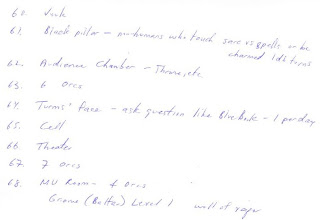 60. Junk
61. Black pillar - nonhumans who touch save vs spells or be
charmed 1d6 turns
62. Audience Chamber - Throne, etc
63. 6 Orcs
64. Face - ask question like - 1 per day
65. Cell
66. Theater
67. 7 Orcs
68. Room - 4 Orcs
Gnome (Butler) Level 1 wall of